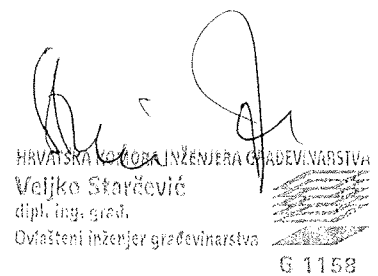 HRVATSKA KOMORA INŽENJERA GRAĐEVINARSTVA
Veljko Starčević
dipl. ing. građ.
Ovlašteni inženjer građevinarstva
G 1158